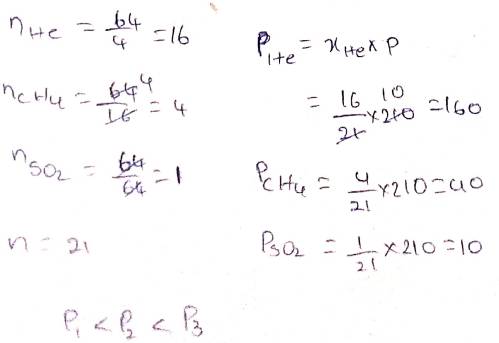 nHe = 64/4 = 16
nCH4 = 64/16 4 = 4
nSO2 = 64/64 = 1
n = 21
PHe = xHe x P
= 16/21 x 210 10 = 160
PCH4 = 4/21 x 210 = 40
PSO2 = 1/21 x 210 = 10
P1 < P2 < P3